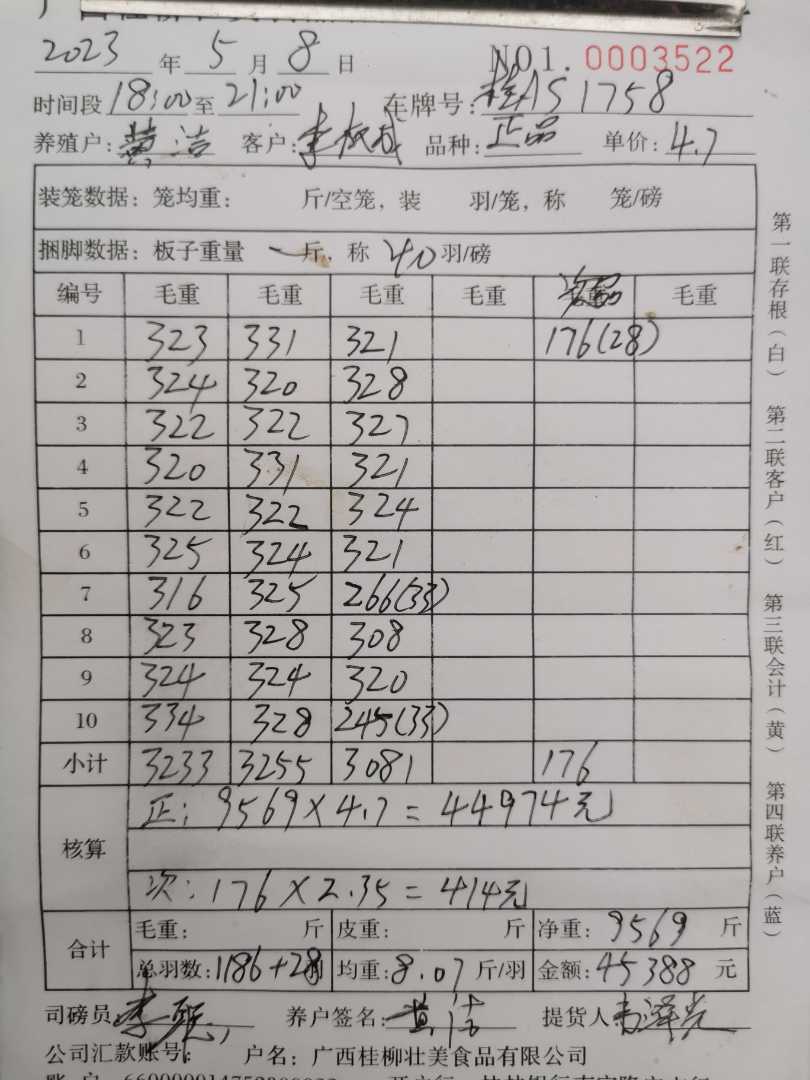 2023 年 5 月 8 日 NO1. 0003522
时间段 18:00 至 21:00 车牌号: 桂AS1758
养殖户: 黄洁 客户: 李 品种: 正品 单价: 4.7
装笼数据: 笼均重: 斤/空笼, 装 羽/笼, 称 笼/磅
捆脚数据: 板子重量 一 斤, 称 40 羽/磅
编号 毛重 毛重 毛重 毛重 次品 毛重
1 323 331 321 176(28)
2 324 320 328
3 322 322 327
4 320 331 321
5 322 322 324
6 325 324 321
7 316 325 266(33)
8 323 328 308
9 324 324 320
10 334 328 245(33)
小计 3233 3255 3081 176
核算
正: 9569×4.7=44974元
次: 176×2.35=414元
合计
毛重: 斤 皮重: 斤 净重: 9569 斤
总羽数: 1186+28 均重: 8.07 斤/羽 金额: 45388 元
司磅员: 李 养户签名: 黄洁 提货人: 韦泽光
公司汇款账号: 户名: 广西桂柳壮美食品有限公司
第一联存根(白) 第二联客户(红) 第三联会计(黄) 第四联养户(蓝)